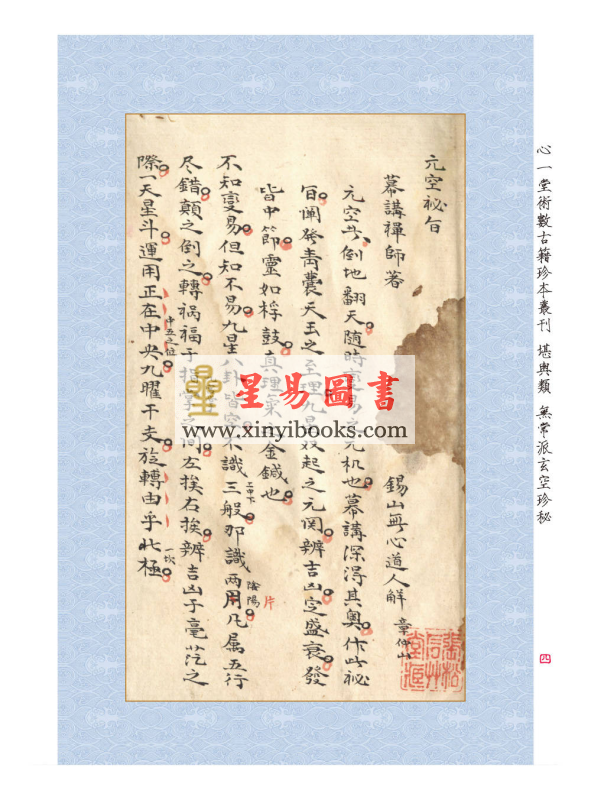 心一堂術數古籍珍本叢刊 堪輿類 無常派玄空珍秘
四
元空祕旨
幕講禪師著
錫山無心道人解 章仲山
元空者倒地翻天隨時變易之元机也幕講深得其奧作此祕
旨闡發青囊天玉之至理九星双起之元関辨吉凶定盛衰發
皆中節靈如桴鼓真理氣 金鍼也
不知變易但知不易九星八卦皆 不識三般那識兩片用凡属五行
二中下
陰陽
尽錯顛之倒之轉禍福于 掌之间左挨右挨辨吉凶于毫茫之
際一天星斗運用正在中央九曜干支旋轉由乎北極
中五之位
一坎
星易圖書
www.xinyibooks.com